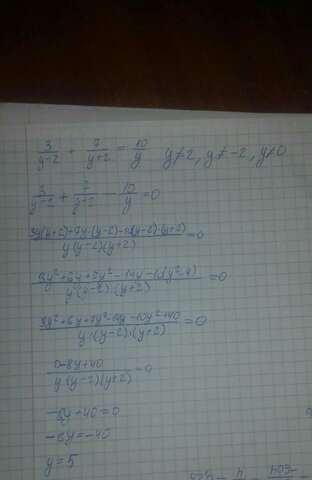 3/(y-2) + 7/(y+2) = 10/y   y≠2, y≠-2, y≠0
3/(y-2) + 7/(y+2) - 10/y = 0
(3y(y+2)+7y·(y-2)-10(y-2)·(y+2))/(y(y-2)(y+2)) = 0
(3y²+6y+7y²-14y-10(y²-4))/(y·(y-2)·(y+2)) = 0
(3y²+6y+7y²-14y-10y²+40)/(y·(y-2)·(y+2)) = 0
(0-8y+40)/(y·(y-2)(y+2)) = 0
-8y+40=0
-8y=-40
y=5